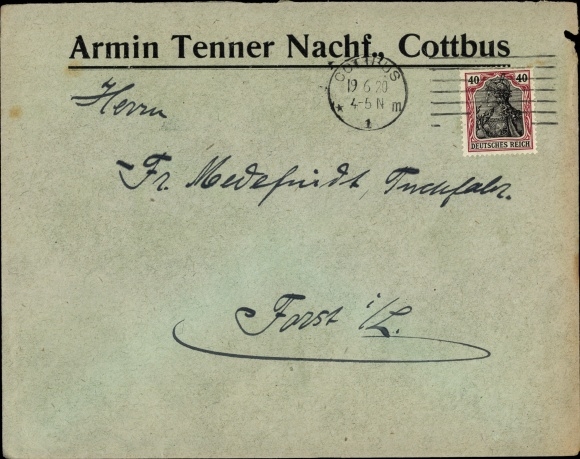 Armin Tenner Nachf., Cottbus
COTTBUS
19.6.20
4-5 N
m
1
40 40
DEUTSCHES REICH
Herrn
Fr. Medefindt, Tuchfabr.
Forst i/L.